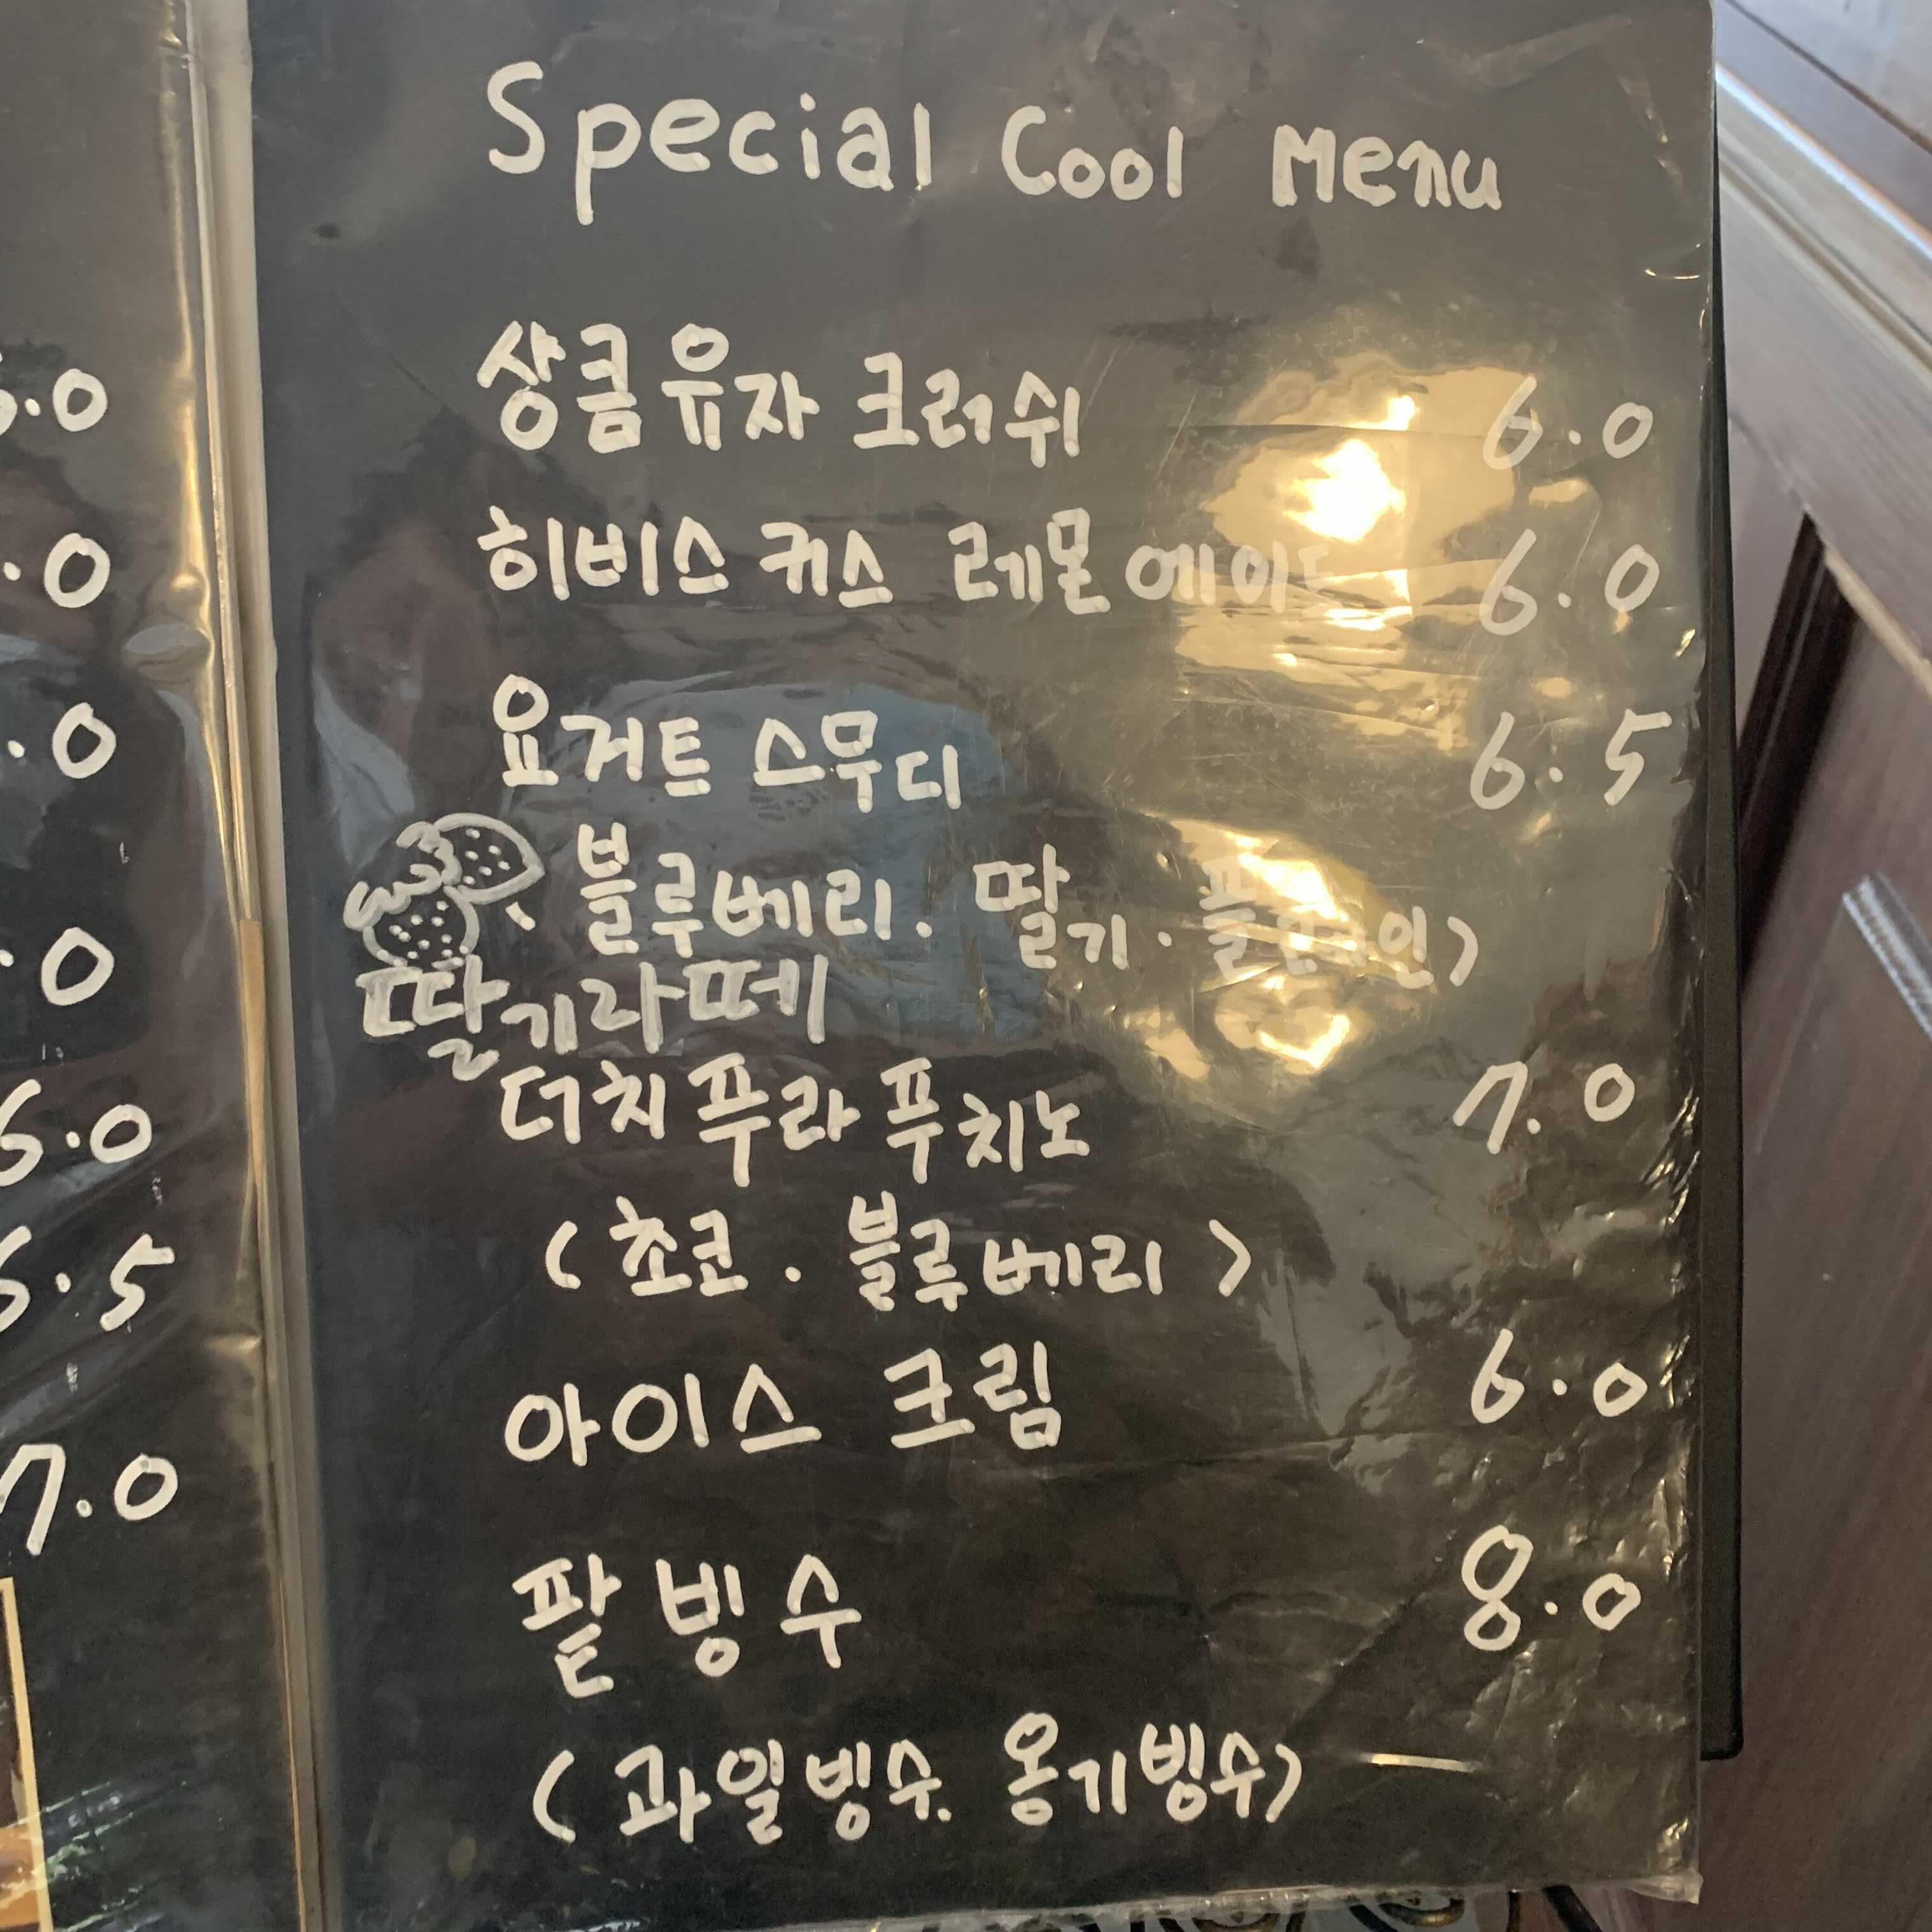 Special Cool Menu
상큼유자 크러쉬 6.0
히비스커스 레몬에이드 6.0
요거트 스무디 6.5
블루베리. 딸기. 플레인)
딸기라떼
더치 푸라푸치노 7.0
(초코. 블루베리)
아이스 크림 6.0
팥빙수 8.0
(과일빙수. 옹기빙수)
.0
.0
.0
.0
6.0
6.5
7.0